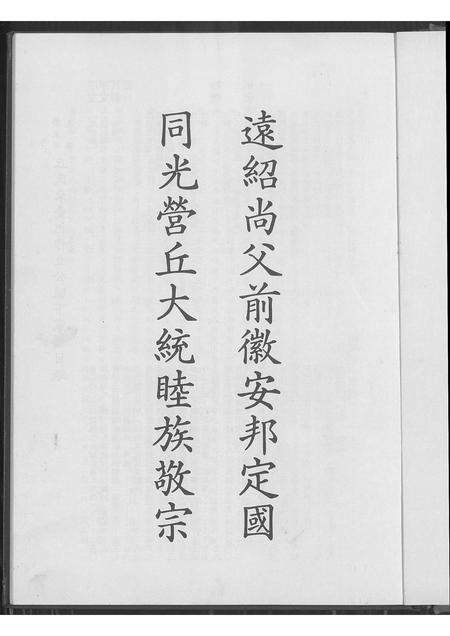 遠紹尚父前徽安邦定國
同光營丘大統睦族敬宗